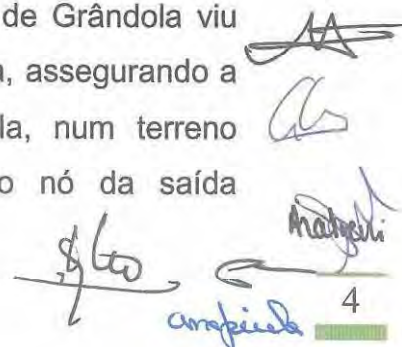 de Grândola viu
a, assegurando a
la, num terreno
o nó da saída
4